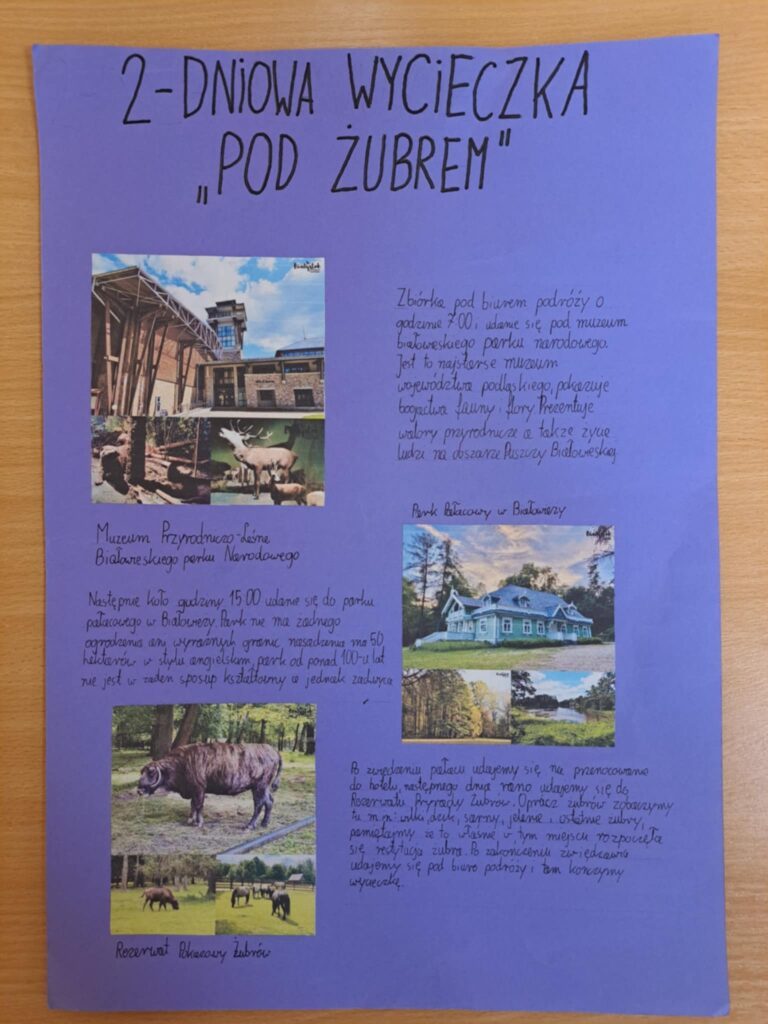 2-DNIOWA WYCIECZKA
„POD ŻUBREM"
Białystok
Zbiórka pod biurem podróży o
godzinie 7:00 i udanie się pod muzeum
białowieskiego parku narodowego.
Jest to najstarsze muzeum
województwa podlaskiego, pokazuje
bogactwa fauny i flory. Prezentuje
walory przyrodnicze a także życie
ludzi na obszarze Puszczy Białowieskiej
Muzeum Przyrodniczo-Leśne
Białowieskiego parku Narodowego
Park Pałacowy w Białowieży
Następnie koło godziny 15:00 udanie się do parku
pałacowego w Białowieży. Park nie ma żadnego
ogrodzenia ani wyraznych granic nasadzenia ma 50
hektarów w stylu angielskim, park od ponad 100-u lat
nie jest w żaden sposup kształtowny a jednak zachwyca
Po zwiedzeniu pałacu udajemy się na przenocowanie
do hotelu, następnego dnia rano udajemy się do
Rezerwatu Przyrady Żubrów. Oprócz żubrów zobaczymy
tu m.in: wilki, dziki, sarny, jelenie i ostatnie żubry,
pamiętajmy że to właśnie w tym miejscu rozpoczęła
się restytucja żubra. Po zakończeniu zwiedzania
udajemy się pod biuro podróży i tam kończymy
wycieczkę.
Rezerwat Pokazowy Żubrów